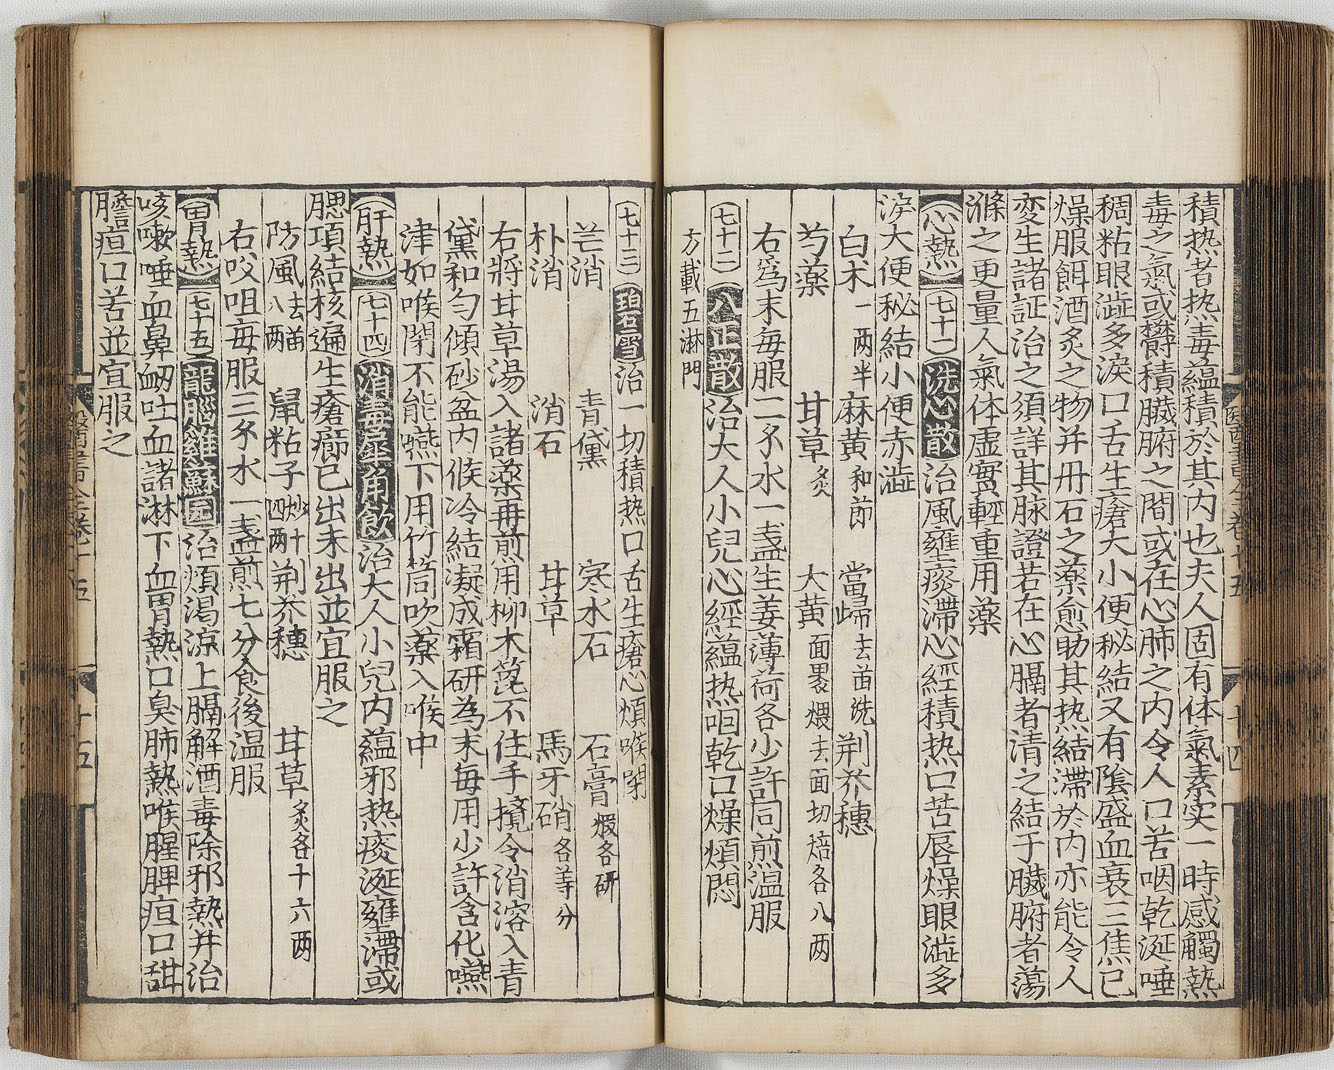 積热者热毒蘊積於其内也夫人固有体氣素实一時感觸熱
毒之氣或欝積臓腑之間或在心肺之内令人口苦咽乾涎唾
稠粘眼澁多淚口舌生瘡大小便秘結又有陰盛血衰三焦已
燥服餌酒炙之物并丹石之藥愈助其热結滯於内亦能令人
变生諸証治之須詳其脉證若在心膈者清之結于臓腑者蕩
滌之更量人氣体虚實輕重用藥
心熱 七十一 洗心散 治風壅痰滯心經積热口苦唇燥眼澁多
淚大便秘結小便赤澁
白术一两半 麻黄和節 當歸去苗洗 荆芥穗
芍藥 甘草炙 大黄面褁煨去面切焙各八两
右爲末每服二錢水一盞生姜薄荷各少許同煎温服
七十二 八正散 治大人小兒心經蘊热咽乾口燥煩悶
方載五淋門
七十三 碧雪 治一切積热口舌生瘡心煩喉閉
芒消 青黛 寒水石 石膏煅各研
朴消 消石 甘草 馬牙硝各等分
右將甘草湯入諸藥再煎用柳木箆不住手攪令消溶入青
黛和勻傾砂盆内候冷結凝成霜研為末每用少許含化嚥
津如喉閉不能嚥下用竹筒吹藥入喉中
肝熱 七十四 消毒犀角飲 治大人小兒内蘊邪热痰涎壅滯或
腮項結核遍生瘡癤已出未出並宜服之
防風去苗八两 鼠粘子炒十四两 荆芥穗 甘草炙各十六两
右㕮咀每服三錢水一盞煎七分食後温服
胃熱 七十五 龍腦雞蘇圓 治煩渴凉上膈解酒毒除邪熱并治
咳嗽唾血鼻衄吐血諸淋下血胃熱口臭肺熱喉腥脾疸口甜
膽疸口苦並宜服之